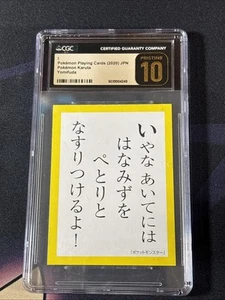 CGC
CERTIFIED GUARANTY COMPANY
Pokémon Playing Cards (2020) JPN
Pokémon Karuta
Yomifuda
PRISTINE
10
いやな あいてには
はなみずを
ぺとりと
なすりつけるよ!
(ポケットモンスター)